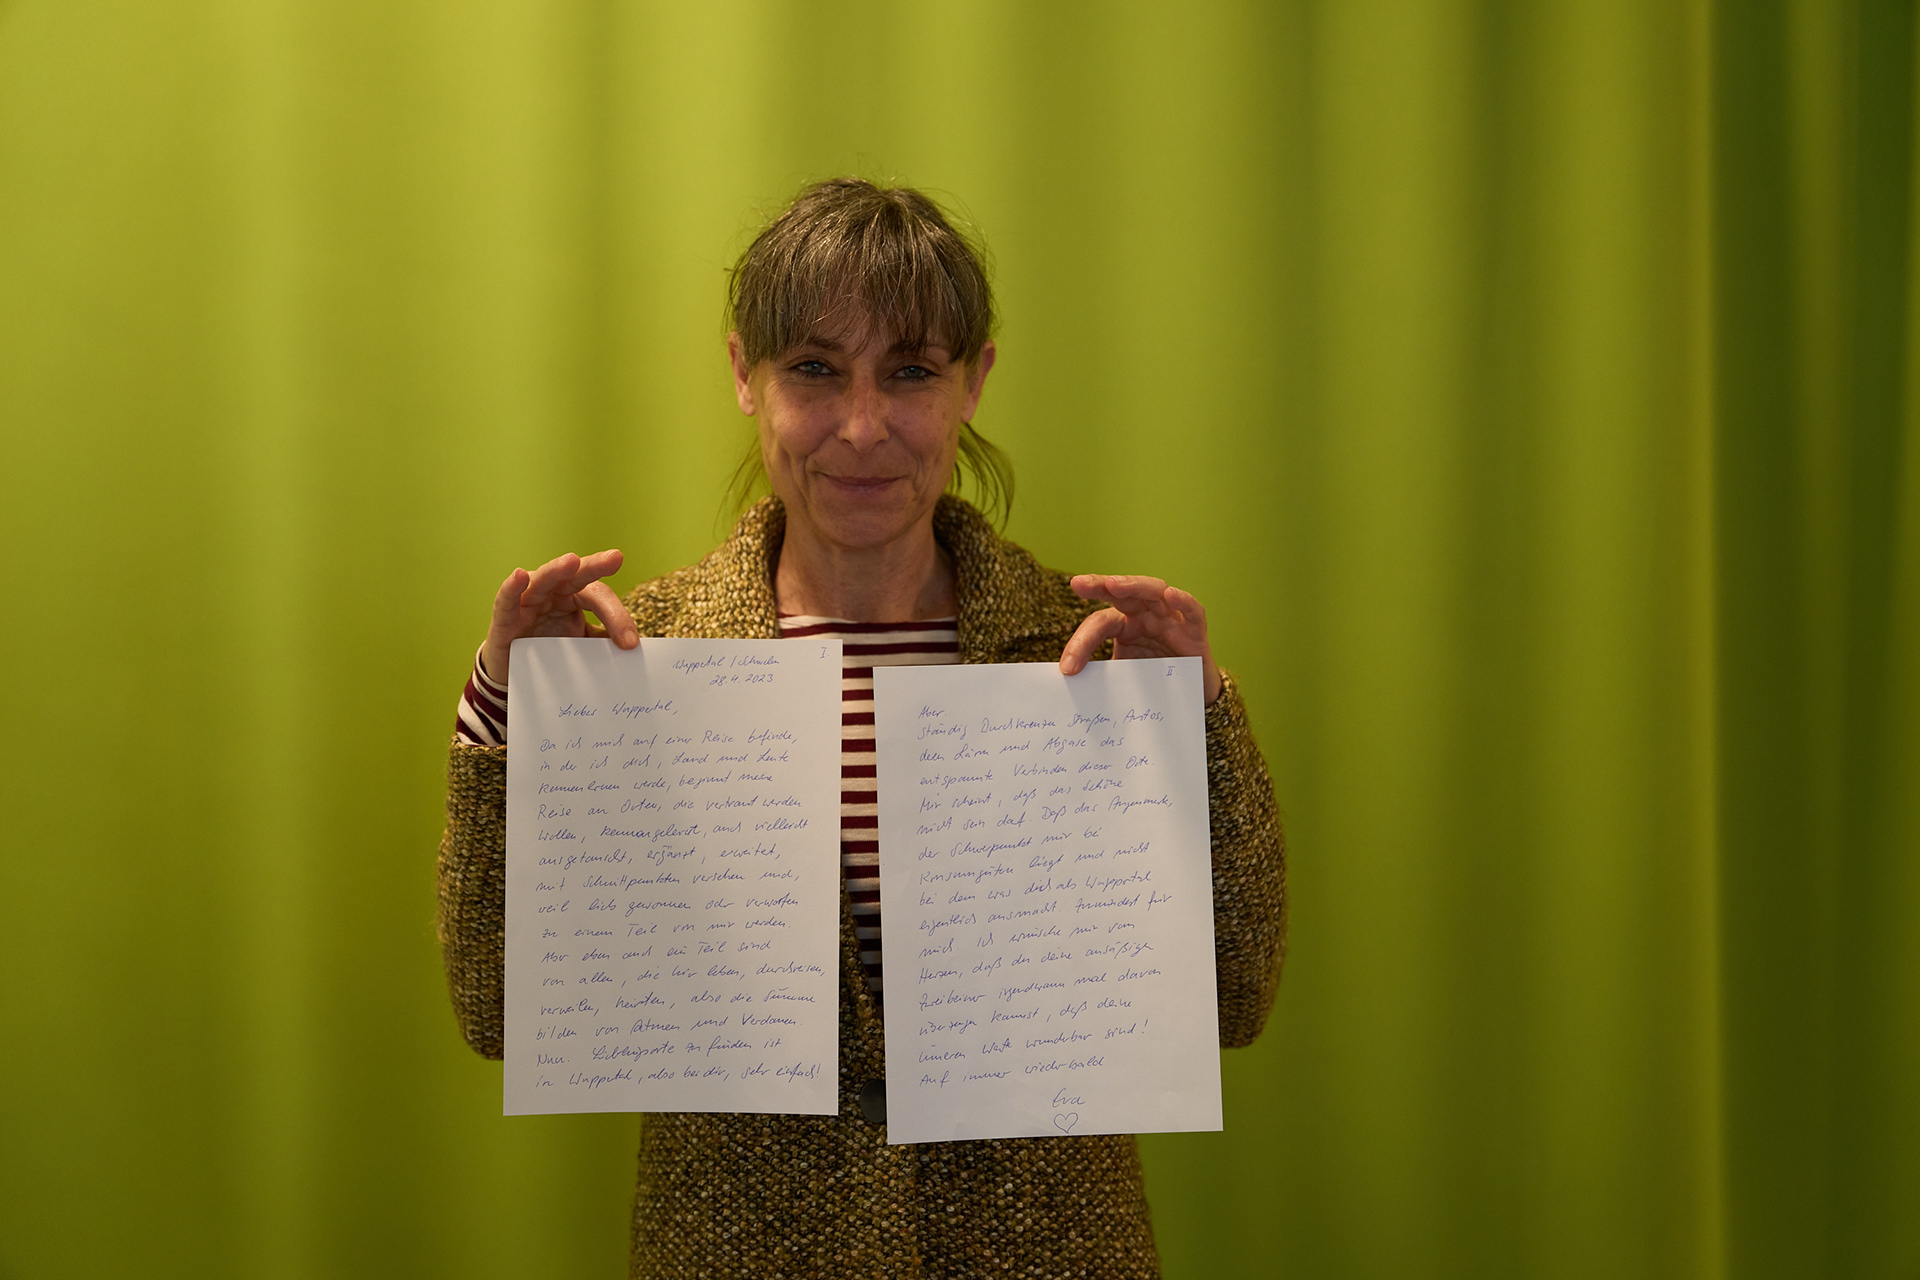 I.
Wuppertal / Schwelm
28.4.2023
Liebes Wuppertal,
Da ich mich auf einer Reise befinde,
in der ich dich, Land und Leute
kennenlernen werde, beginnt meine
Reise an Orten, die vertraut werden
wollen, kennengelernt, und vielleicht
ausgetauscht, ergänzt, erweitert,
mit Schnittpunkten versehen und,
weil lieb gewonnen oder verworfen
zu einem Teil von mir werden.
Aber eben auch ein Teil sind
von allen, die hier leben, durchreisen,
verweilen, heirten, also die Summe
bilden von Atmen und Verdauen.
Nun. Lieblingsorte zu finden ist
in Wuppertal, also bei dir, sehr einfach!
II.
Aber
ständig Durchkreuzen Straßen, Autos,
deren Lärm und Abgase das
entspannte Verbinden dieser Orte.
Mir scheint, daß das Schöne
nicht sein darf. Daß das Augenmerk,
der Schwerpunkt mir bei
Konsumgüten liegt und nicht
bei dem was dich als Wuppertal
eigentlich ausmacht. Zumindest für
mich. Ich wünsche mir vom
Herzen, daß du deine ansäßigen
Zweibeiner irgendwann mal davon
überzeugen kannst, daß deine
inneren Werte wunderbar sind!
Auf immer wiederbald
Eva